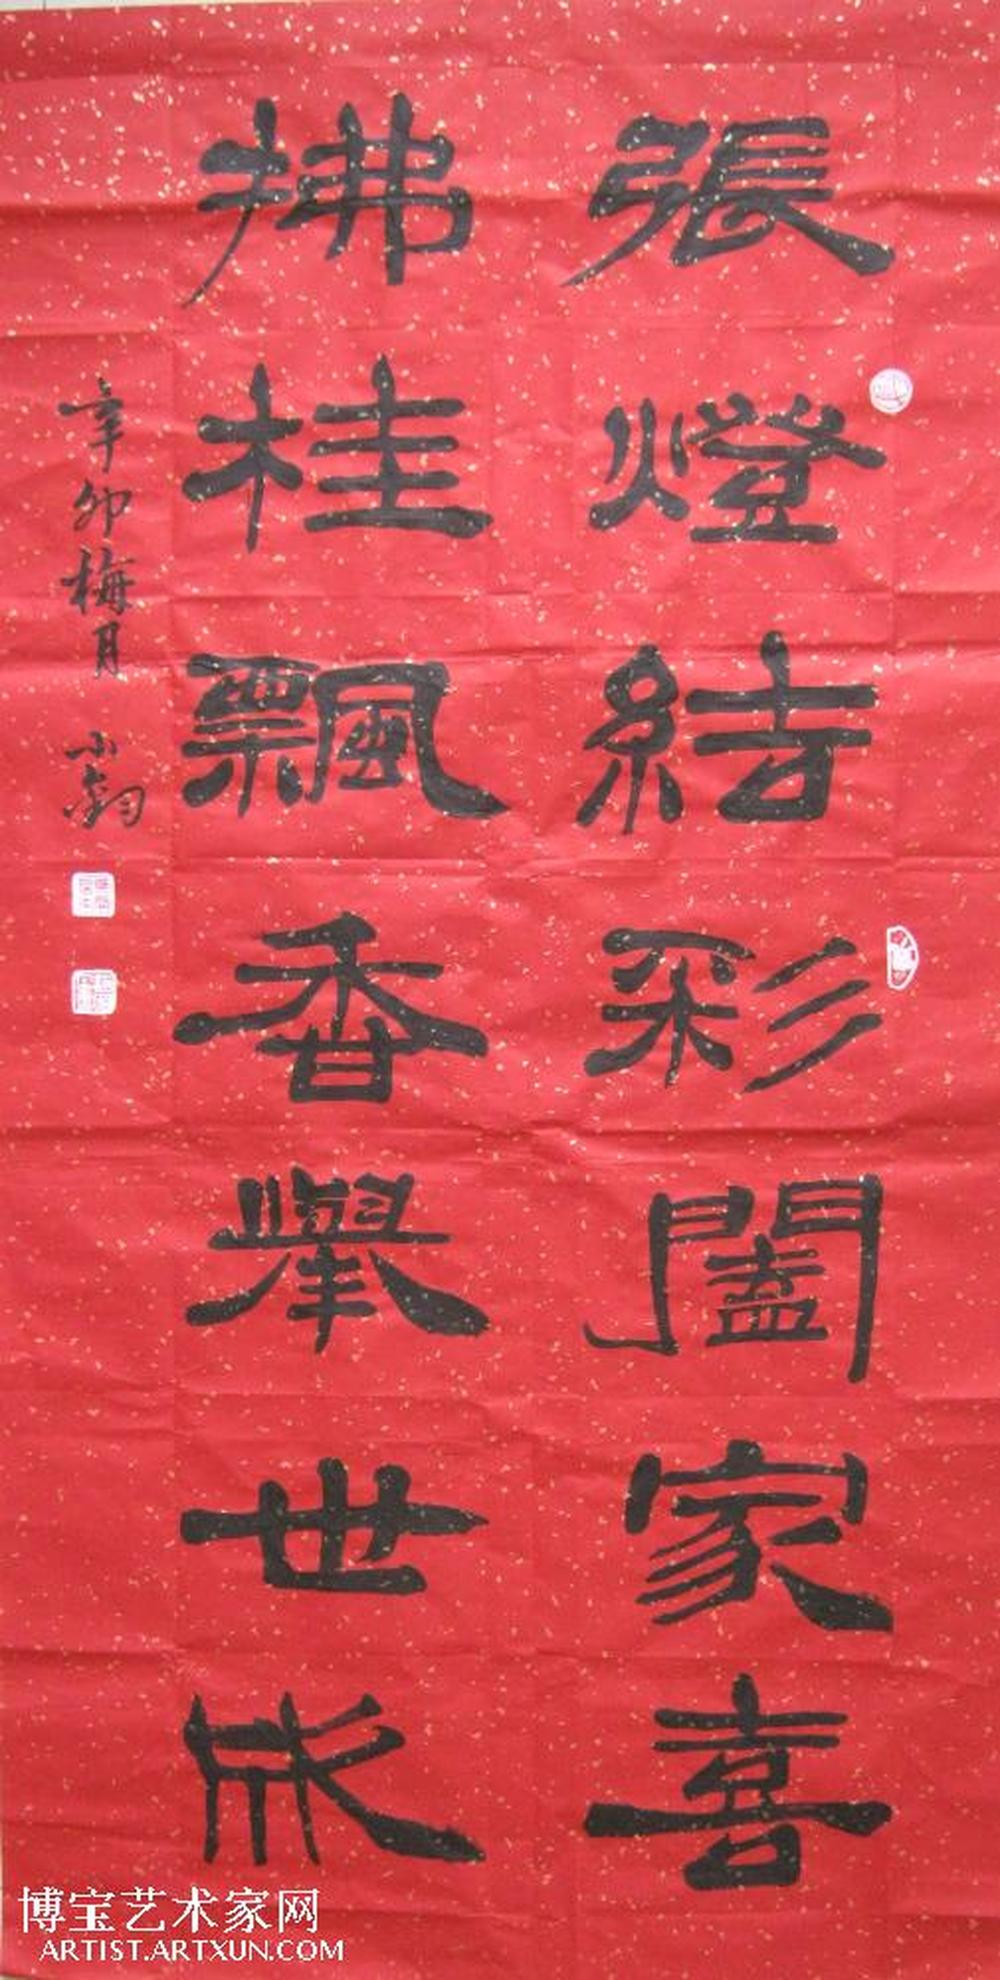 張燈結彩闔家喜
拂桂飄香舉世
辛卯梅月 小鈞
博宝艺术家网
ARTIST.ARTXUN.COM